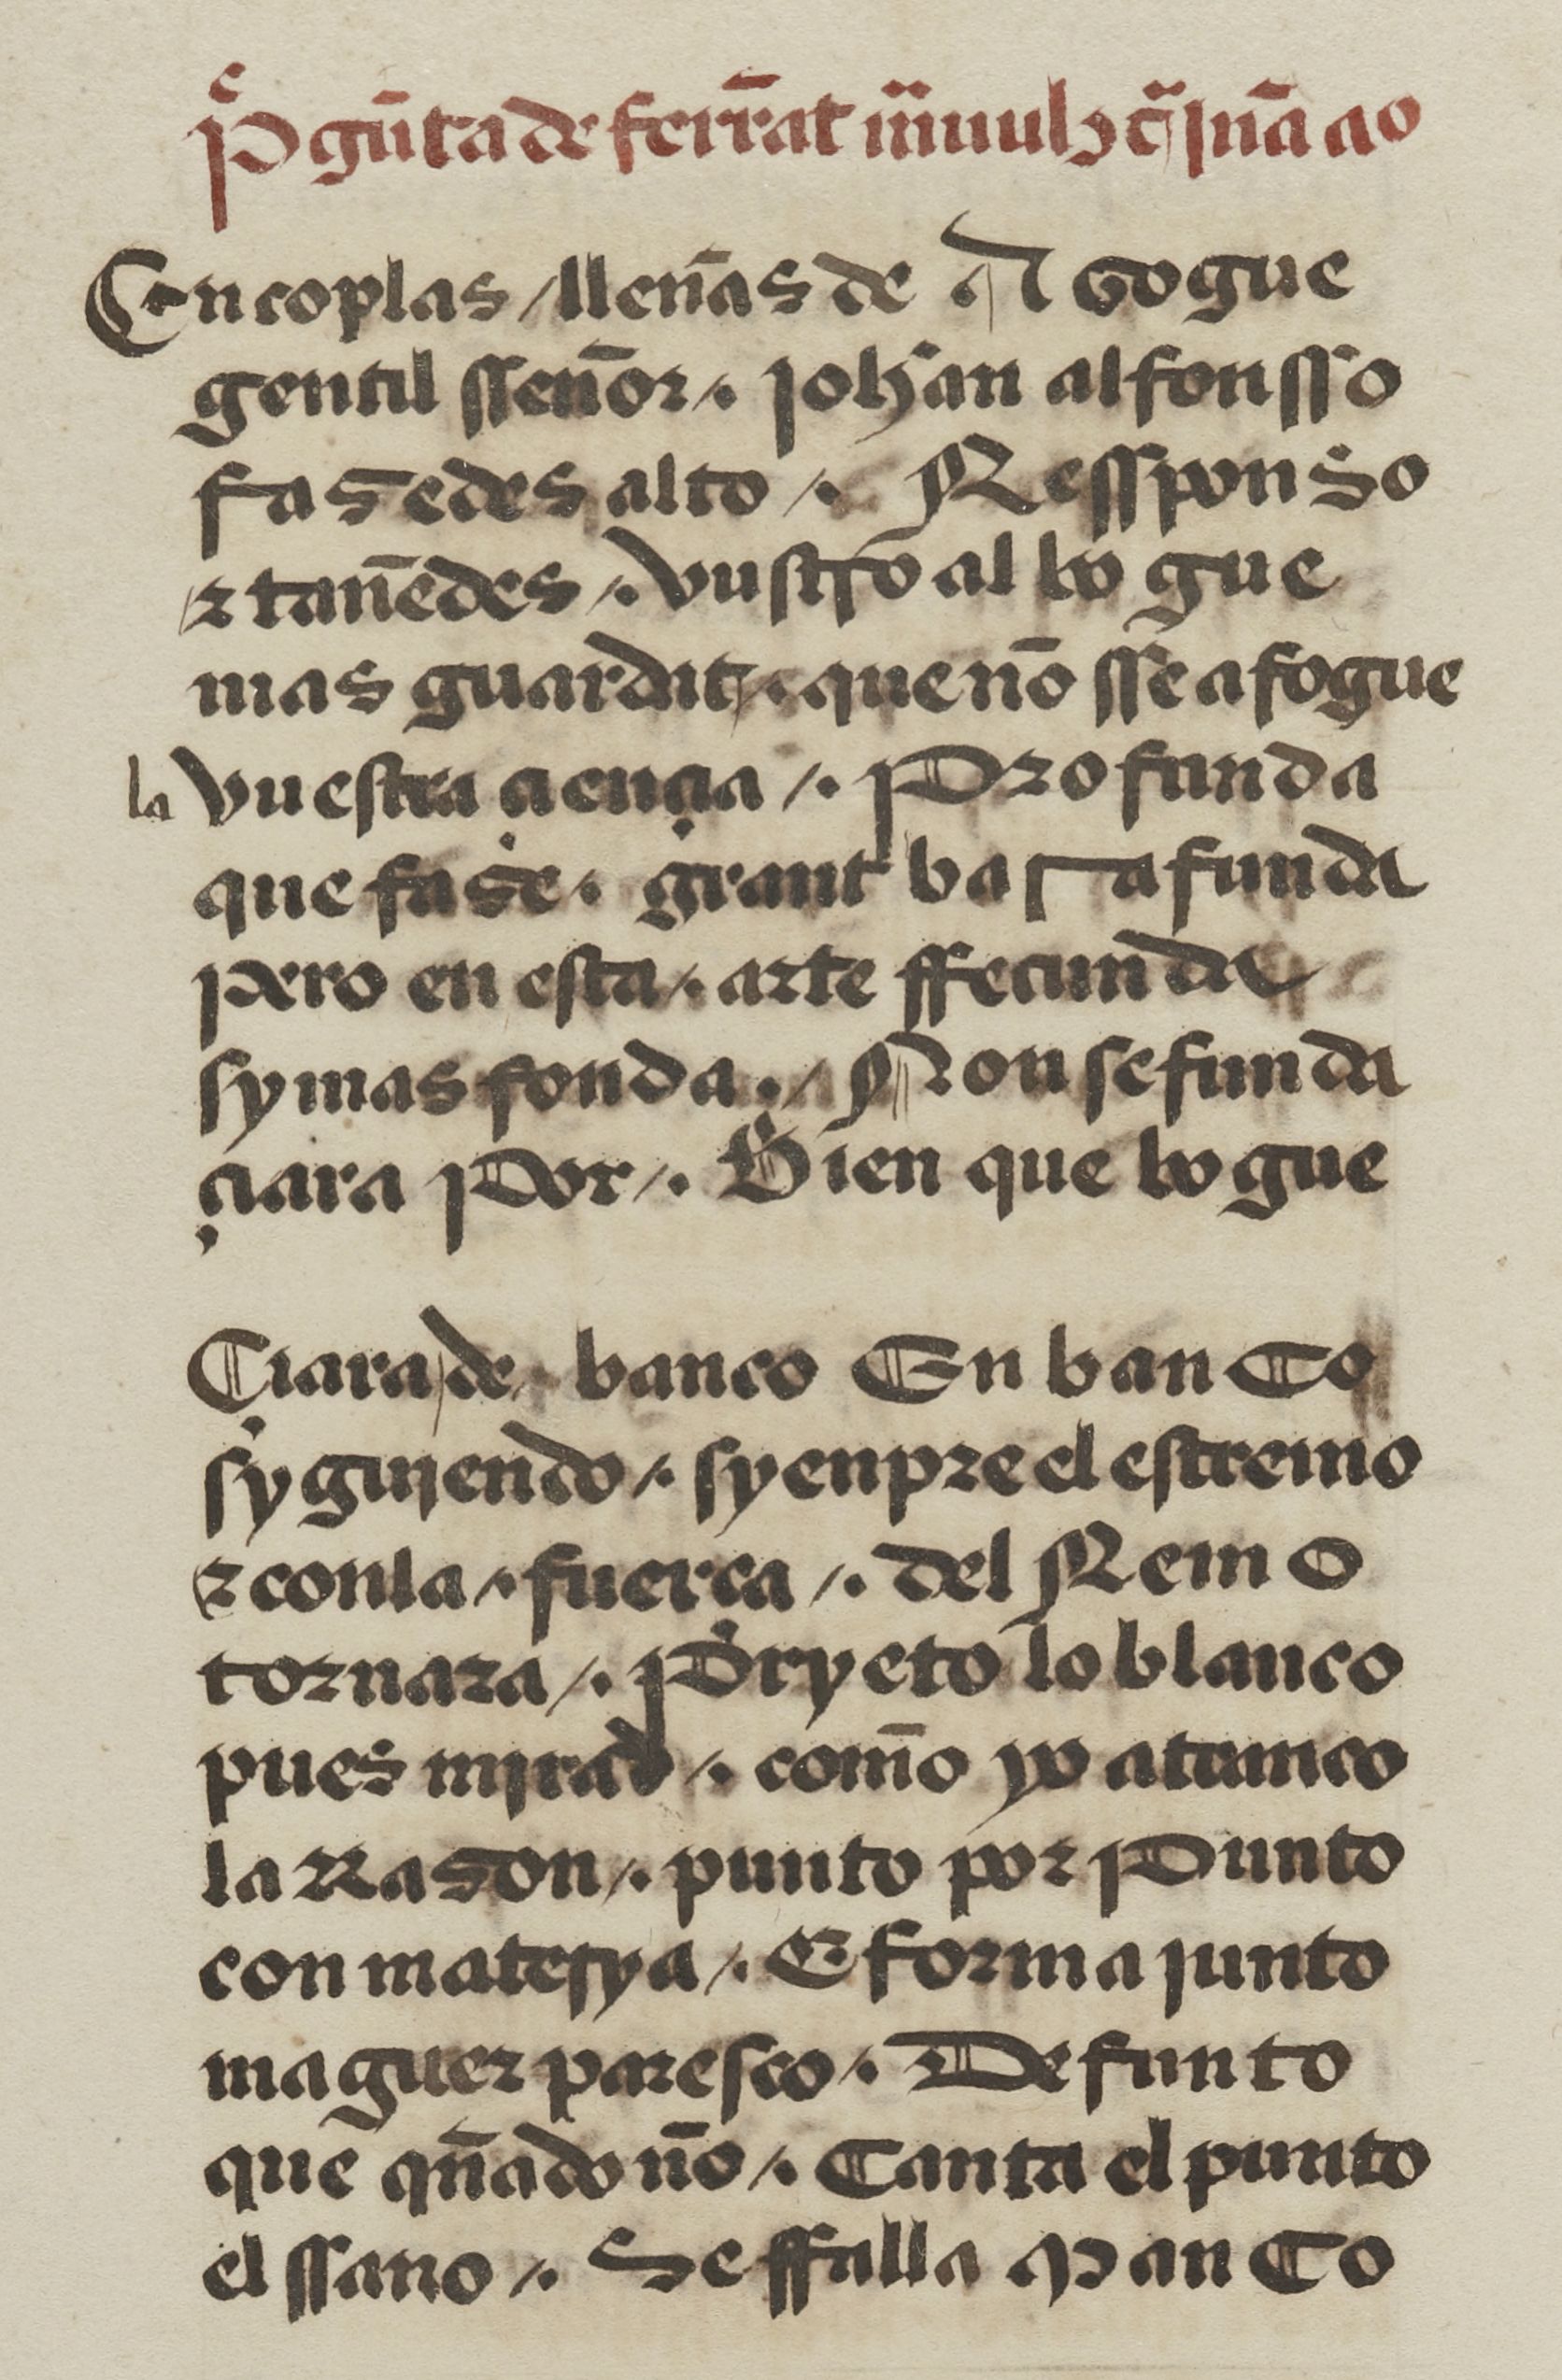 Pregũta de ferrãt mãuel contra jnã ao
En coplas / llenãs de Açogue
gentil sseñor ⁊. Johan alfonsso
faSedes alto /. RessponSo
⁊ tanẽdes /. vustro albogue
mas guardit /. que nõ sse afogue
la vuestra çiençia /. Profunda
que fase. grant barafunda
pero en esta /. arte ffecunda
sy mas fonda ./ Non se funda
çiara Por /. Bien que bogue
Ciara de banco En banCo
syguiendo /. syenpre el estremo
⁊ con la /. fuerça /. del Remo
tornara /. Pryeto lo blanco
pues mirad /. comõ yo atranco
la Rason /. punto por Punto
con materya /. E forma junto
maguer paresco /. Defunto
que qñado nõ /. Canta el punto
el ssano /. Se ffalla ManCo